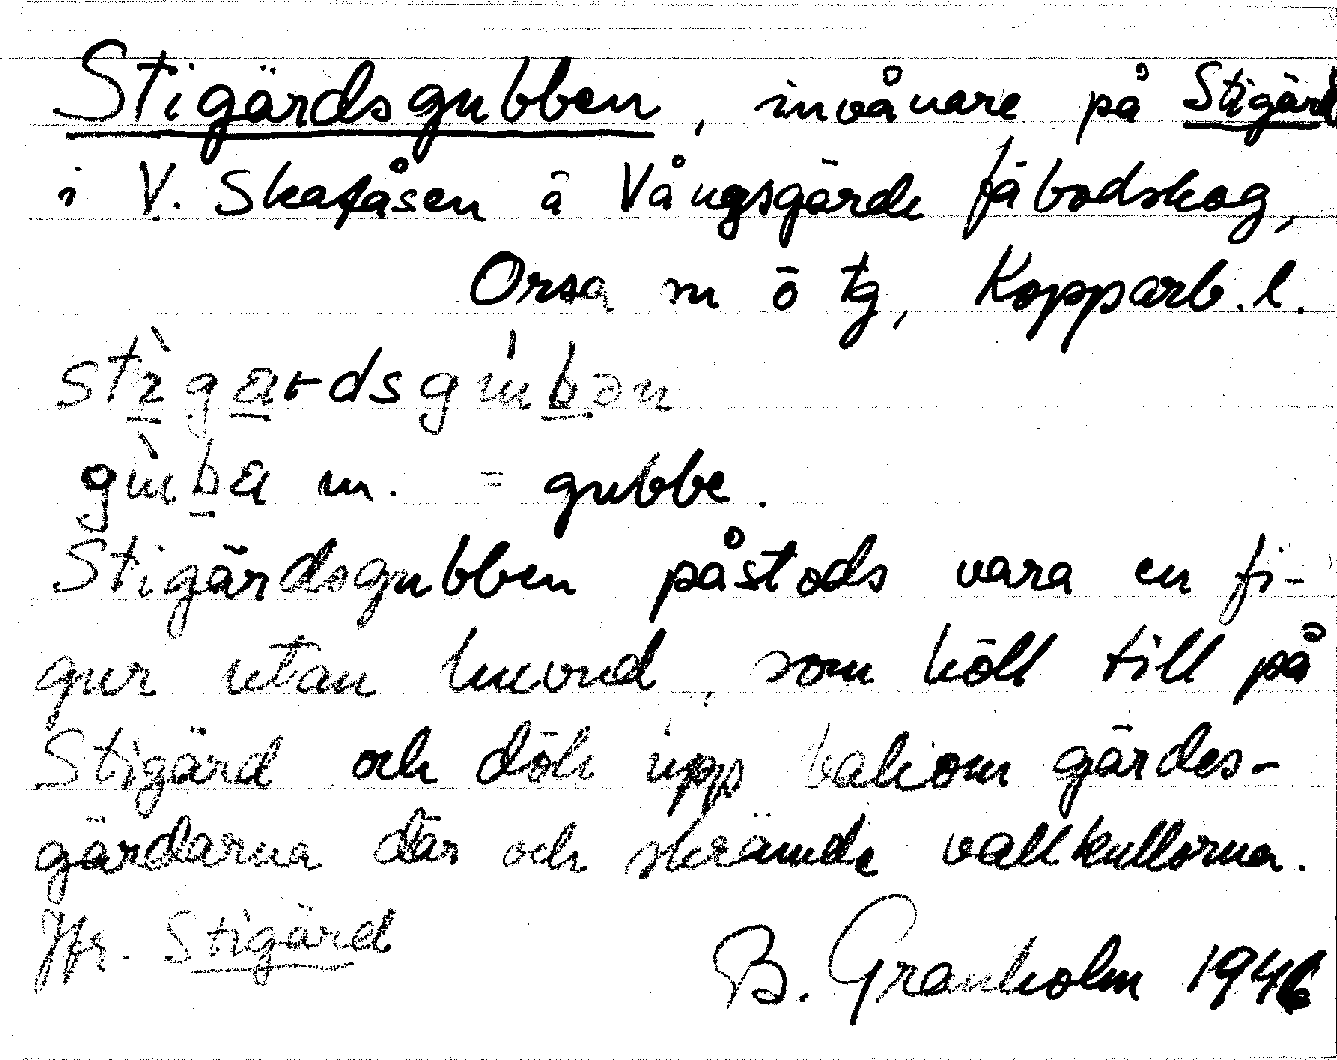 Stigärdsgubben, invånare på Stigärd
i V. Skafåsen å Vångsgärde fäbodskog,
Orsa sn ö tg, Kopparb. l.
Stigärdsgubben påstods vara en fi-
gur utan huvud, som höll till på
Stigärd och dök upp bakom gärdes-
gårdarna där och skrämde vallkullorna.
Jfr. Stigärd
B. Granholm 1946
m. = gubbe.